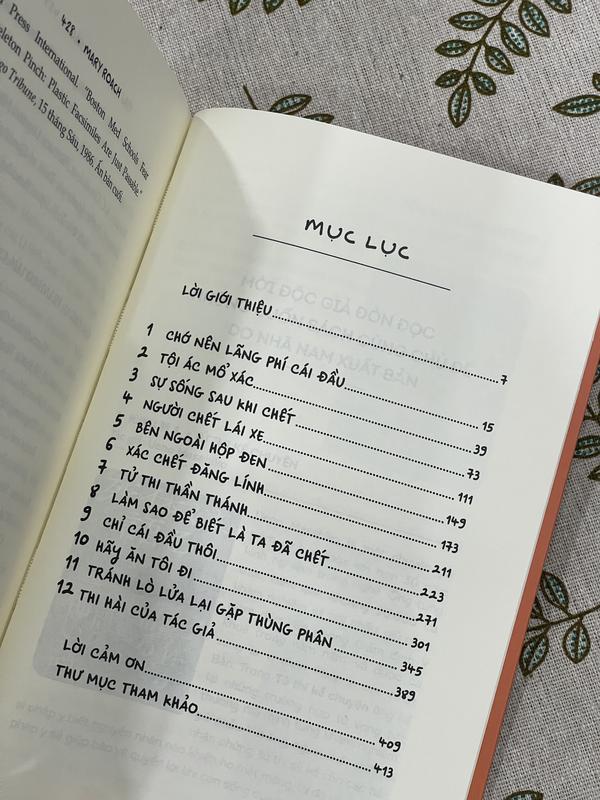 428 • MARY ROACH
Press International. "Boston Med Schools Fear
Pinch: Plastic Facsimiles Are Just Passable."
Tribune, 15 tháng Sáu, 1986. Ấn bản cuối.
MỤC LỤC
LỜI GIỚI THIỆU 7
1 CHỚ NÊN LÃNG PHÍ CÁI ĐẦU 15
2 TỘI ÁC MỔ XÁC 39
3 SỰ SỐNG SAU KHI CHẾT 73
4 NGƯỜI CHẾT LÁI XE 111
5 BÊN NGOÀI HỘP ĐEN 149
6 XÁC CHẾT ĐĂNG LÍNH 173
7 TỬ THI THẦN THÁNH 211
8 LÀM SAO ĐỂ BIẾT LÀ TA ĐÃ CHẾT 223
9 CHỈ CÁI ĐẦU THÔI 271
10 HÃY ĂN TÔI ĐI 301
11 TRÁNH LÒ LỬA LẠI GẶP THÙNG PHÂN 345
12 THI HÀI CỦA TÁC GIẢ 389
LỜI CẢM ƠN 409
THƯ MỤC THAM KHẢO 413